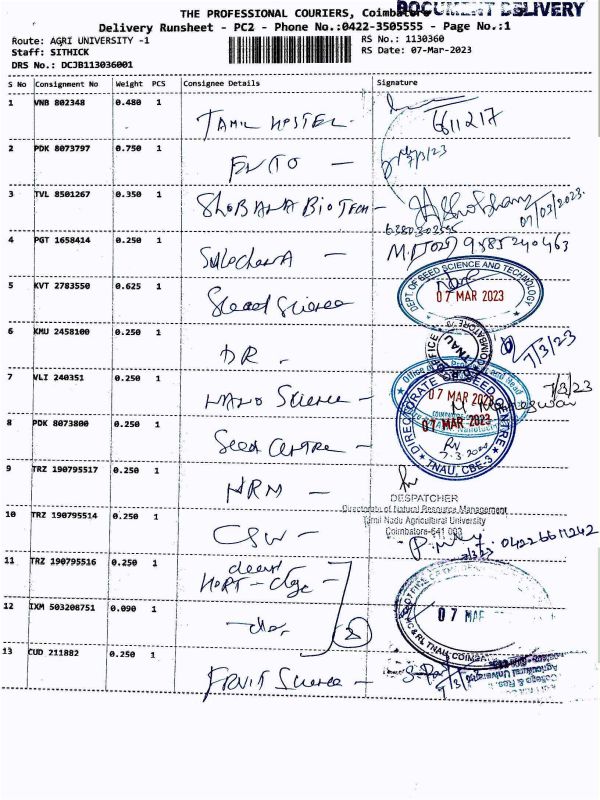 THE PROFESSIONAL COURIERS, Coimbatore
DOCUMENT DELIVERY
Delivery Runsheet - PC2 - Phone No.:0422-3505555 - Page No.:1
Route: AGRI UNIVERSITY -1
RS No.: 1130360
Staff: SITHICK
RS Date: 07-Mar-2023
DRS No.: DCJB113036001
S No Consignment No Weight PCS Consignee Details Signature
1 VNB 802348 0.480 1
TAMIL HOSTEL - 6611217
2 PDK 8073797 0.750 1
ENTO - 7/3/23
3 TVL 8501267 0.350 1
SHOBANA BIOTECH - 07/03/2023.
4 PGT 1658414 0.250 1
SulochanA - 9585240463
5 KVT 2783550 0.625 1
DEPT OF SEED SCIENCE AND TECHNOLOGY
07 MAR 2023
Seed Science
6 KMU 2458100 0.250 1
DR - 7/3/23
7 VLI 240351 0.250 1
7/3/23
NANO Science -
07 MAR 2023
8 PDK 8073800 0.250 1
DIRECTORATE OF SEED CENTRE
07 MAR 2023
TNAU, CBE-3
Seed Centre -
9 TRZ 190795517 0.250 1
NRM -
DESPATCHER
Directorate of Natural Resource Management
Tamil Nadu Agricultural University
Coimbatore-641 003
10 TRZ 190795514 0.250 1
CSW - 04226611242
11 TRZ 190795516 0.250 1
dean
HORT - clge
12 IXM 503208751 0.090 1
07 MAR
-do- 2
13 CUD 211882 0.250 1
FRUIT Science -